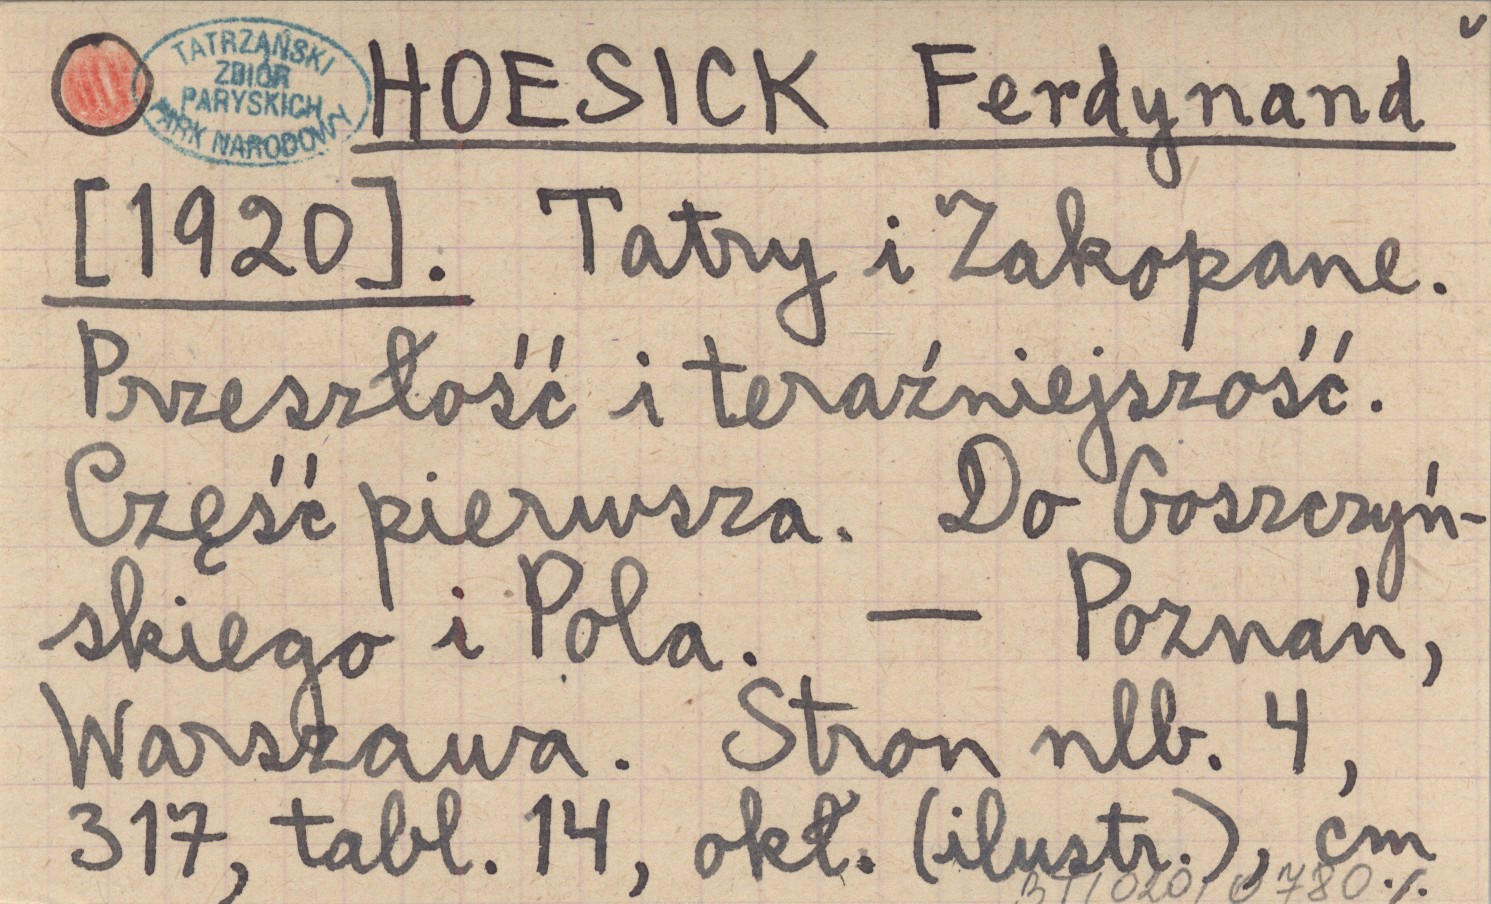 TATRZAŃSKI
ZBIÓR
PARYSKICH
PARK NARODOWY
HOESICK Ferdynand
[1920]. Tatry i Zakopane.
Przeszłość i teraźniejszość.
Część pierwsza. Do Goszczyń-
skiego i Pola. — Poznań,
Warszawa. Stron nlb. 4,
317, tabl. 14, okł. (ilustr.), cm